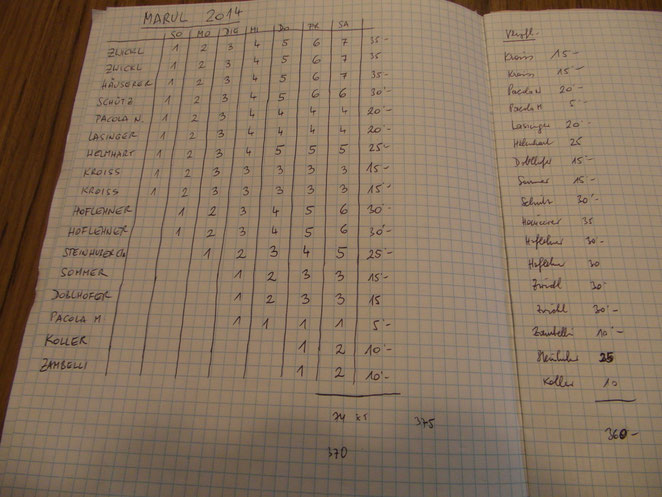 MARUL 2014
SO MO DIE MI DO FR SA
ZWICKL 1 2 3 4 5 6 7 35-
ZWICKL 1 2 3 4 5 6 7 35
HÄUSERER 1 2 3 4 5 6 7 35-
SCHÜTZ 1 2 3 4 5 6 6 30'-
PACOLA N. 1 2 3 4 4 4 4 20'-
LASINGER 1 2 3 4 4 4 4 20'-
HELMHART 1 2 3 4 5 5 5 25-
KROISS 1 2 3 3 3 3 3 15-
KROISS 1 2 3 3 3 3 3 15'-
HOFLEHNER 1 2 3 4 5 6 30'-
HOFLEHNER 1 2 3 4 5 6 30'-
1 2 3 4 5 25'-
SOMMER 1 2 3 3 15'-
DOBLHOFER 1 2 3 3 15
PACOLA M 1 1 1 1 5'-
KOLLER 1 2 10'-
ZAMBELLI 1 2 10'-
74 x5 375
370
Verpfl.
Kroiss 15-
Kroiss 15'-
Pacola N 20'-
Pacola M 5'-
Lasinger 20'-
Helmhart 25
Doblhofer 15'-
Sommer 15'-
Schütz 30'-
Häuserer 35
Hoflehner 30-
Hoflehner 30
Zwickl 30'-
Zwickl 30'-
Zambelli 10'-
25
Koller 10
360-